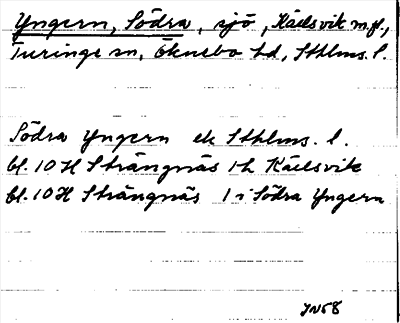 Yngern, Södra, sjö, Käelsvik m.fl.,
Turinge sn, Öknebo hd, Sthlms. l.
Södra Yngern ek Sthlms. l.
bl. 10 H Strängnäs 1h Käelsvik
bl. 10 H Strängnäs 1 i Södra Yngern
JN58